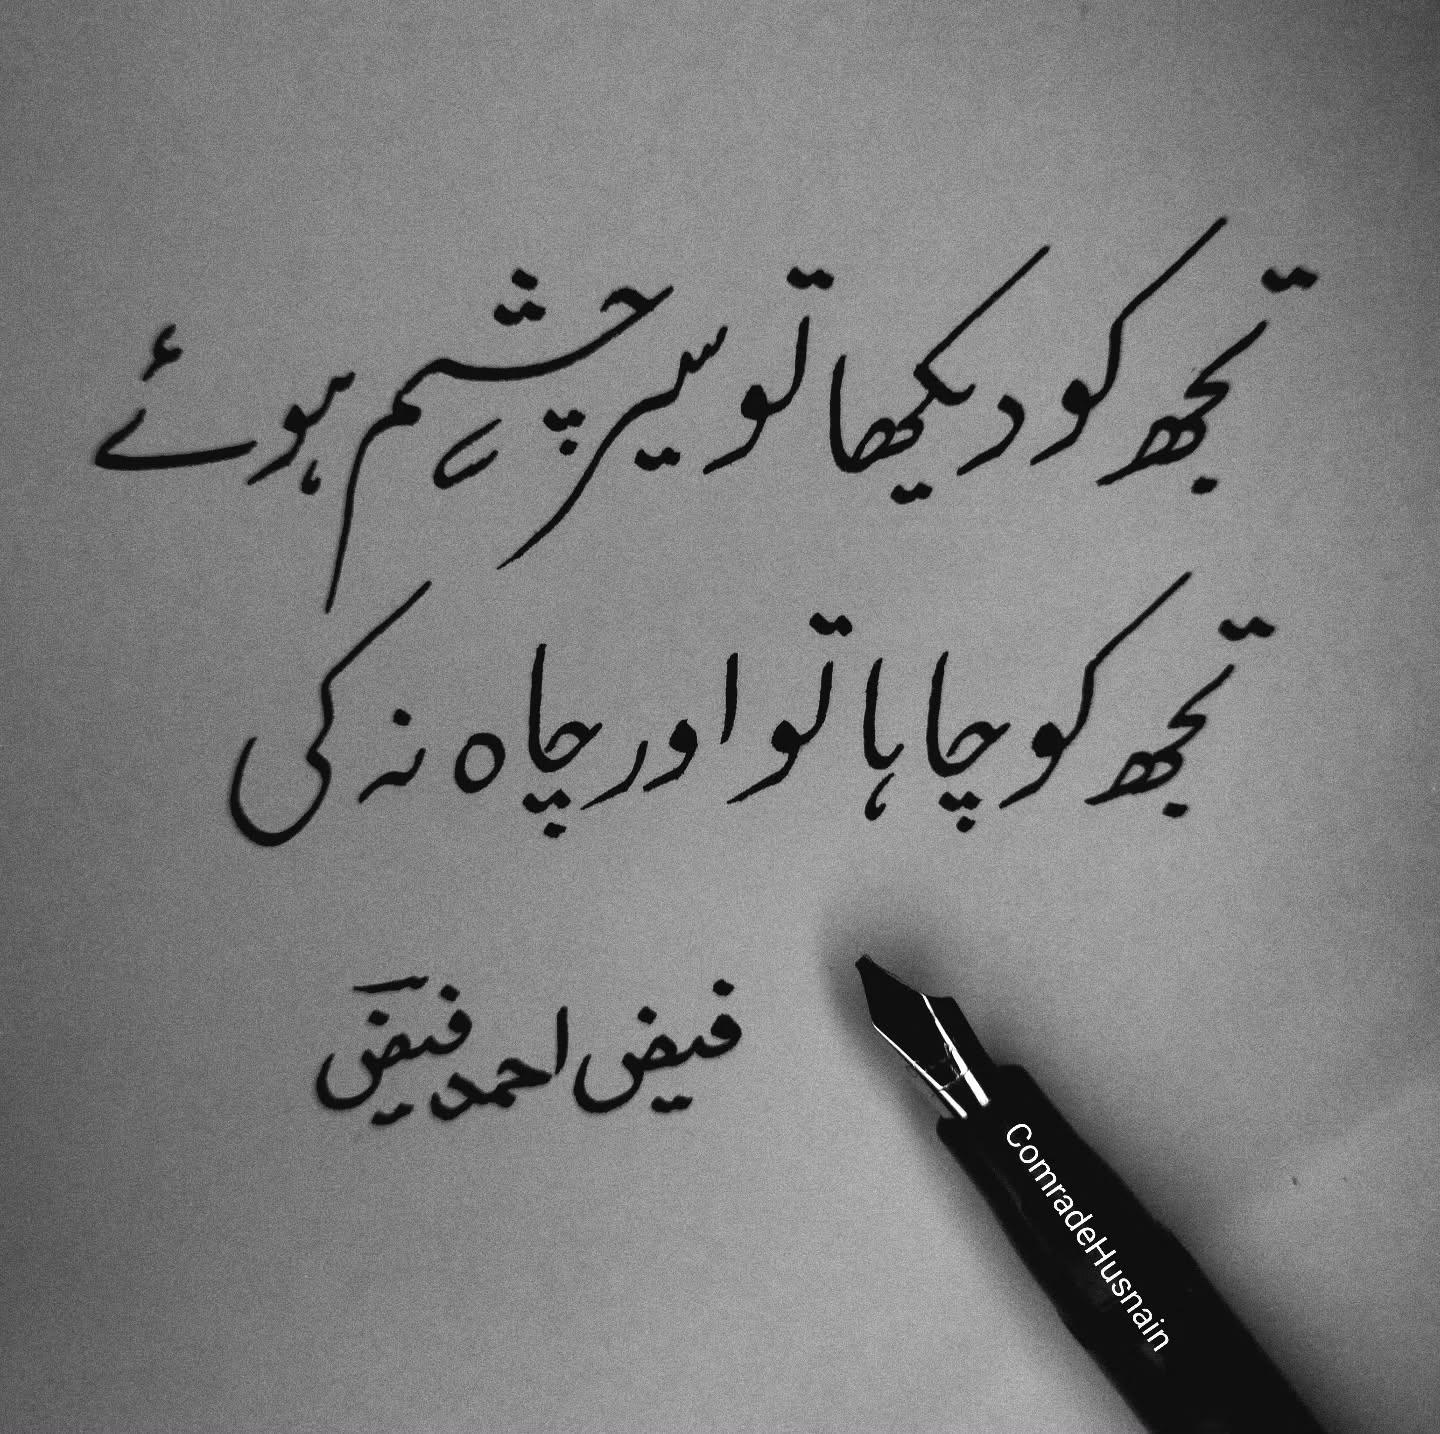 تجھ کو دیکھا تو سیر چشم ہوئے
تجھ کو چاہا تو اور چاہ نہ کی
فیض احمد فیضؔ
ComradeHusnain